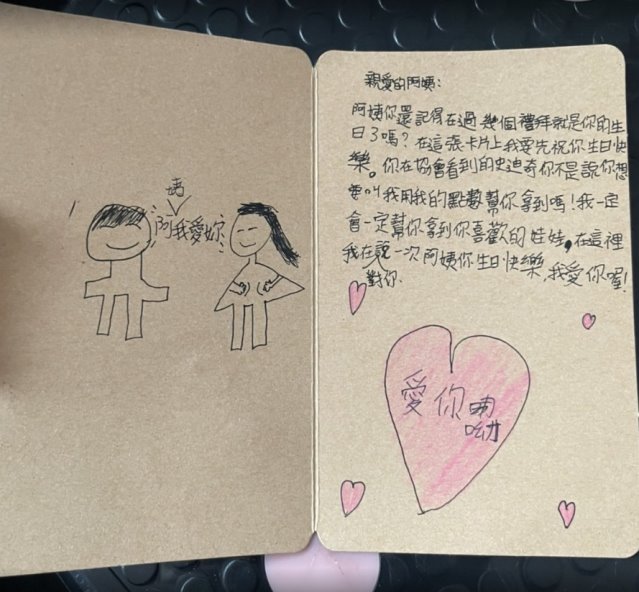 阿姨我愛妳
親愛的阿姨:
阿姨你還記得在過幾個禮拜就是你的生
日了嗎?在這張卡片上我要先祝你生日快
樂。你在協會看到的史迪奇你不是說你想
要叫我用我的點數幫你拿到嗎!我一定
會一定幫你拿到你喜歡的娃娃,在這裡
我在對你說一次阿姨你生日快樂,我愛你喔!
愛你呦